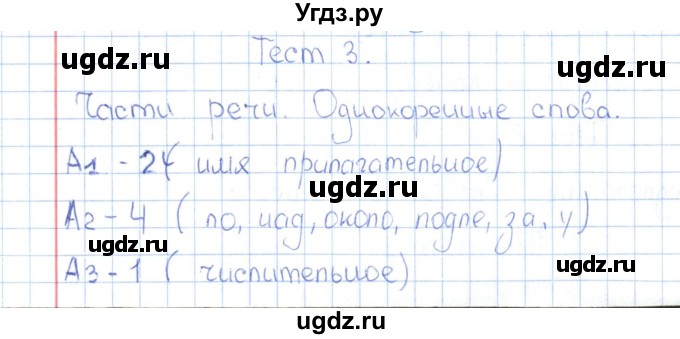 Угдз.ру
ugdz.ru ugdz.ru
Тест 3.
ugdz.ru ugdz.ru
Части речи. Однокоренные слова.
ugdz.ru
А1 - 2( имя прилагательное)
ugdz.ru
А2 - 4 ( по, над, около, подле, за, у)
ugdz.ru ugdz.ru
А3 - 1 ( числительное)
ugdz.ru ugdz.ru
ugdz.ru